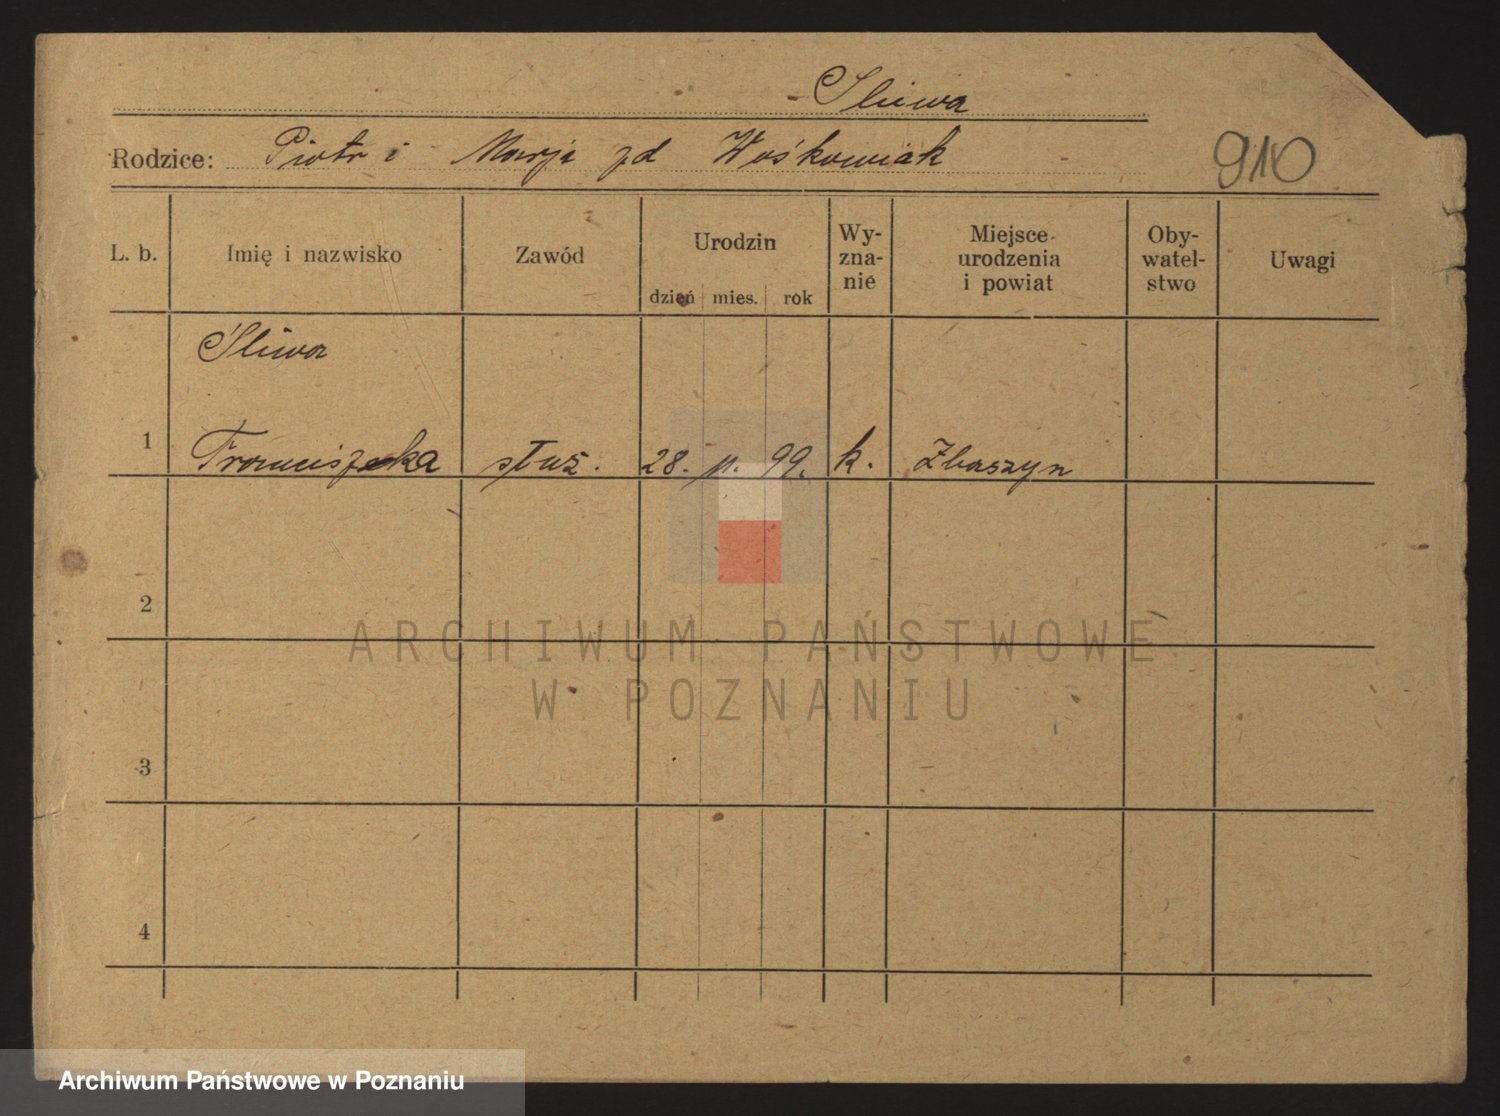 Śliwa
Rodzice: Piotr i Marja zd Wośkowiak
910
L. b.
Imię i nazwisko
Zawód
Urodzin
dzień mies. rok
Wy-
zna-
nie
Miejsce
urodzenia
i powiat
Oby-
watel-
stwo
Uwagi
Śliwa
1 Franciszeka służ. 28. 99. k. Zbaszyn
2
3
4
ARCHIWUM PAŃSTWOWE
W POZNANIU
Archiwum Państwowe w Poznaniu